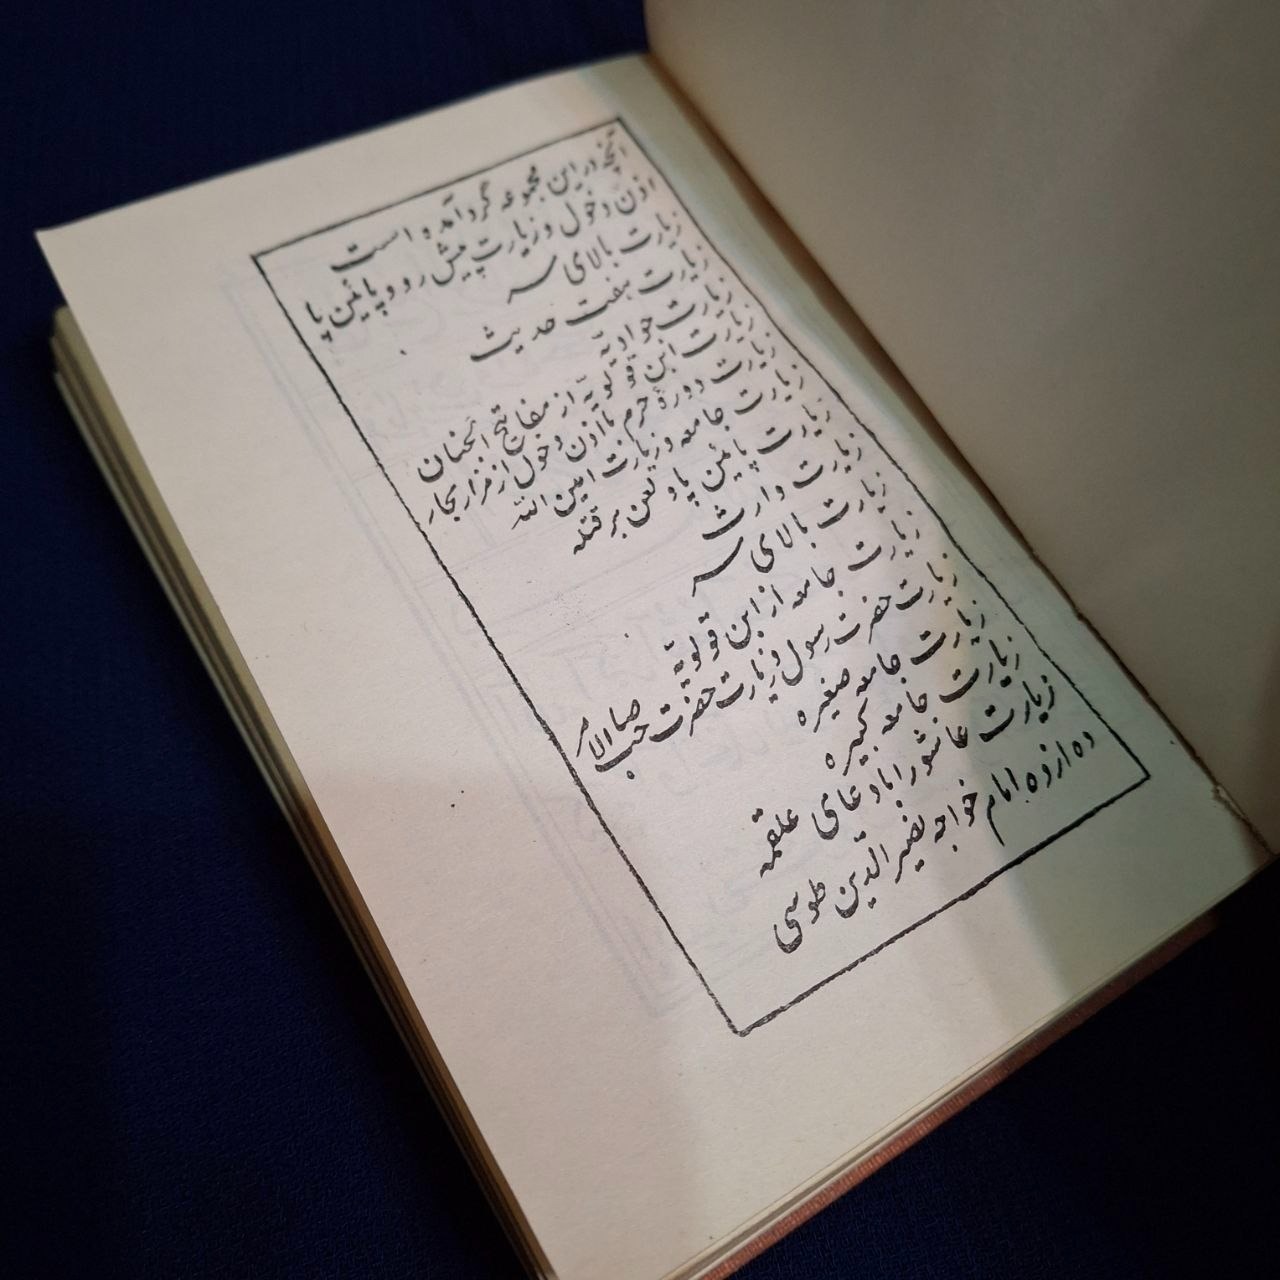 آنچه در این مجموعه گردآمده است
اذن دخول و زیارت پیش رو و پائین پا
زیارت بالای سر
زیارت هفت حدیث
زیارت جوادیّه
زیارت ابن قولویّه از مفاتیح الجنان
زیارت دورهٔ حرم بااذن دخول از مزار بحار
زیارت جامعه و زیارت امین الله
زیارت پائین پا و لعن بر قتله
زیارت وارث
زیارت بالای سر
زیارت جامعه از ابن قولویّه
زیارت حضرت رسول و زیارت حضرت صاحب الامر
زیارت جامعه صغیره
زیارت جامعه کبیره
زیارت عاشورا با دعای علقمه
دوازده امام خواجه نصیر الدّین طوسی